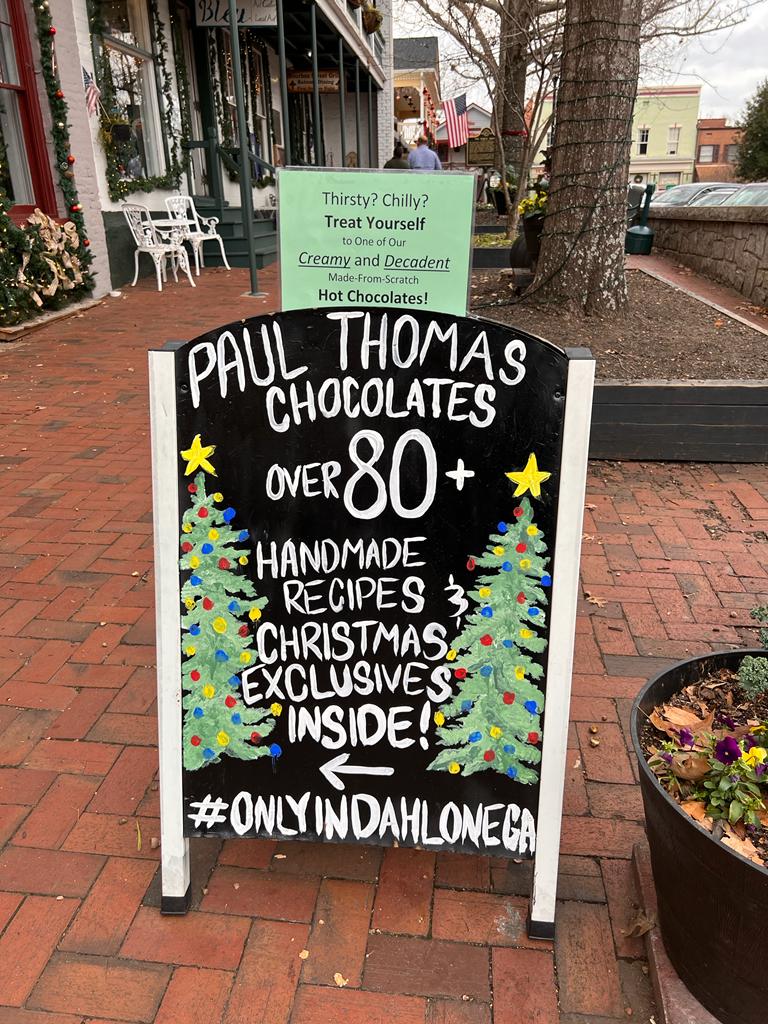 Bleu
Thirsty? Chilly?
Treat Yourself
to One of Our
Creamy and Decadent
Made-From-Scratch
Hot Chocolates!
PAUL THOMAS
CHOCOLATES
OVER 80+
HANDMADE
RECIPES &
CHRISTMAS
EXCLUSIVES
INSIDE!
←
#ONLYINDAHLONEGA